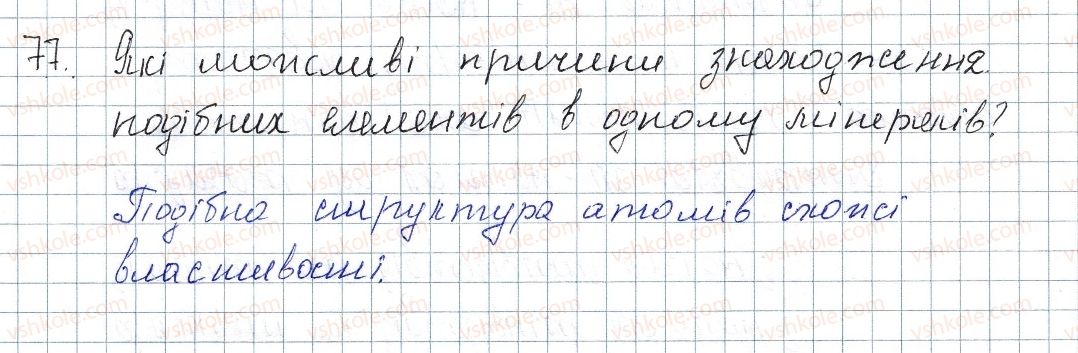 77. Які можливі причини знаходження
подібних елементів в одному мінералів?
Подібна структура атомів схожі
властивості.